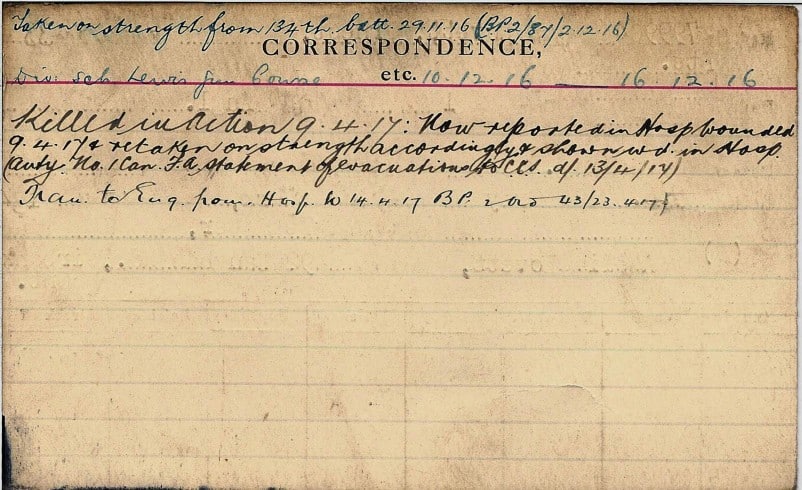 Taken on strength from 134th. batt. 29.11.16 (BP2/87/2.12.16)
CORRESPONDENCE,
etc.
Div. Sch Lewis Gun Course 10.12.16 — 16.12.16
Killed in Action 9.4.17: Now reported in Hosp wounded
9.4.17 & retaken on strength accordingly & shown wd. in Hosp.
(Auty. No. 1 Can. F.A. statement of evacuations to CCS. d/. 13/4/17)
Tran. to Eng. from. Hosp. W 14.4.17 BP. 43/23.4.17